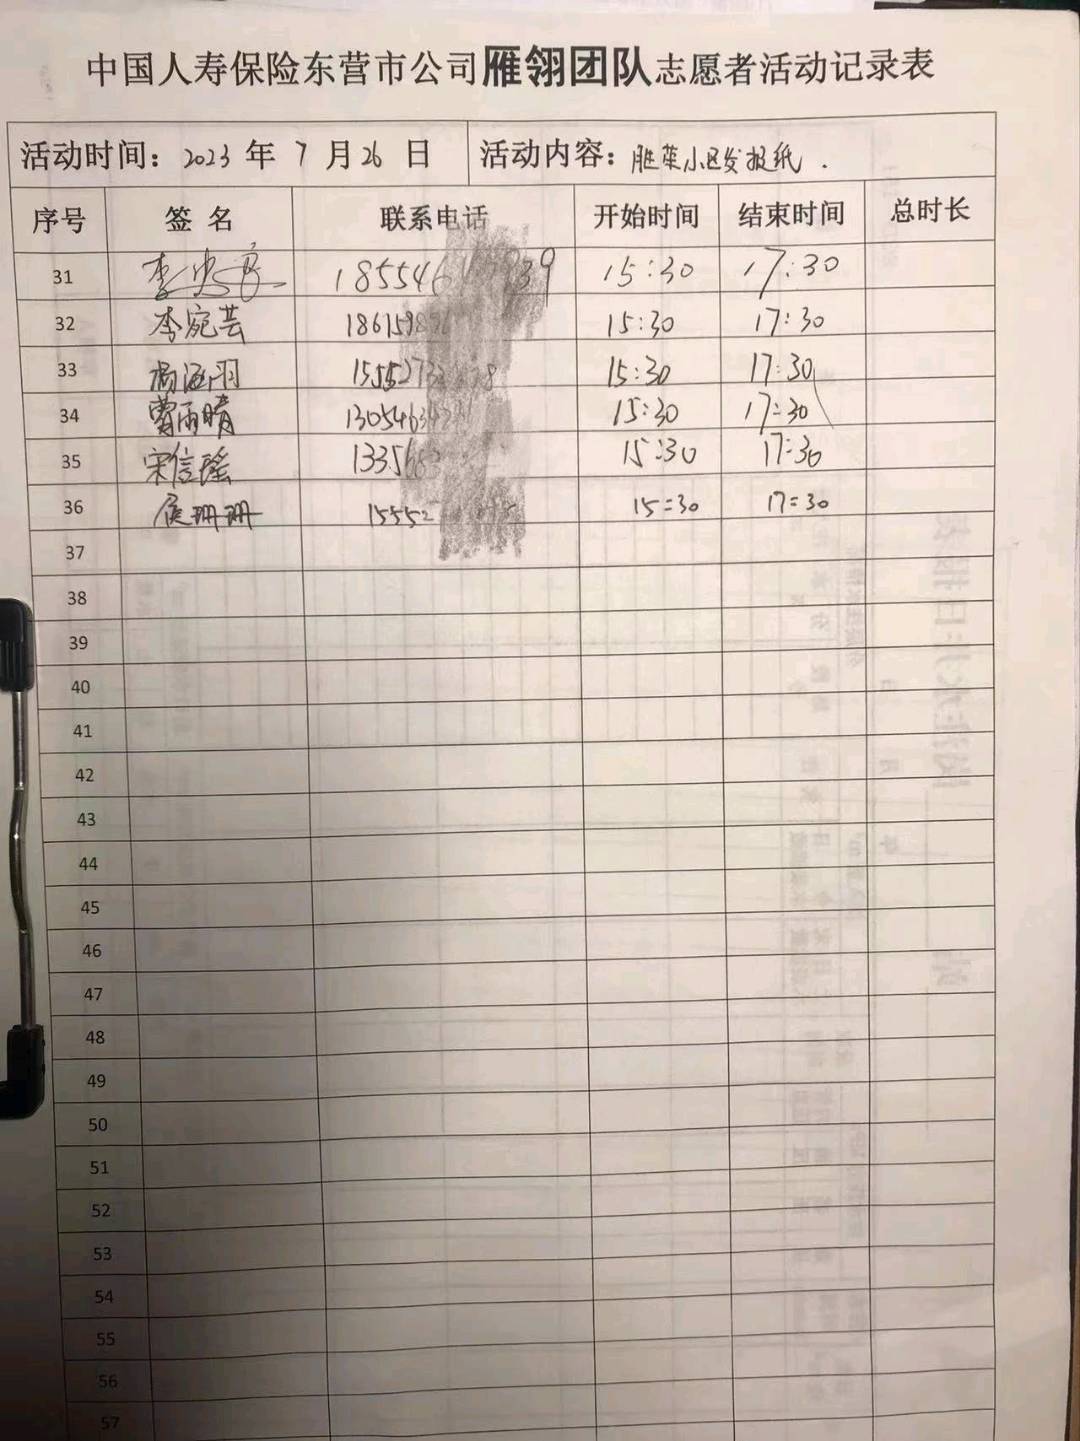 中国人寿保险东营市公司雁翎团队志愿者活动记录表
活动时间：2023 年 7 月 26 日 活动内容：胜莱小区发报纸．
序号 签 名 联系电话 开始时间 结束时间 总时长
31 李 15:30 17:30
32 李宛芸 15:30 17:30
33 杨涵羽 15:30 17:30
34 曹雨晴 15:30 17:30
35 宋信瑶 15:30 17:30
36 侯珊珊 15:30 17:30
37
38
39
40
41
42
43
44
45
46
47
48
49
50
51
52
53
54
55
56
57